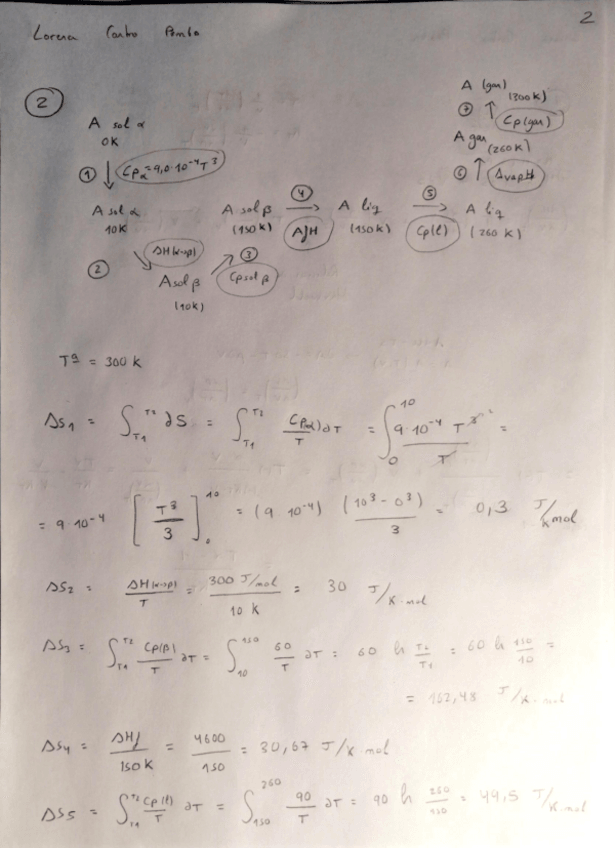 2
Lorena Castro Pombo
②
A sol α
0K
① ↓ Cpα=9,0·10⁻⁴T³
A sol α
10K
② ΔH(α→β)
A sol β
(10K)
③ Cp sol β
A sol β
(150K)
④ → ΔfH
A liq
(150K)
⑤ → Cp(l)
A liq
(260 K)
⑥ ↑ ΔvapH
A gas (260K)
⑦ ↑ Cp(gas)
A (gas)
(300K)
Tª = 300 K
ΔS₁ = ∫_{T1}^{T2} ∂S = ∫_{T1}^{T2} Cp(α)/T ∂T = ∫_{0}^{10} 9·10⁻⁴ T³/T =
= 9 10⁻⁴ [T³/3]_{0}^{10} = (9 10⁻⁴) (10³ - 0³)/3 = 0,3 J/K mol
ΔS₂ = ΔH(α→β)/T = 300 J/mol / 10 K = 30 J/K·mol
ΔS₃ = ∫_{T1}^{T2} Cp(β)/T ∂T = ∫_{10}^{150} 60/T ∂T = 60 ln T2/T1 = 60 ln 150/10 =
= 162,48 J/K·mol
ΔS₄ = ΔHf/150K = 4600/150 = 30,67 J/K·mol
ΔS₅ = ∫_{T1}^{T2} Cp(l)/T ∂T = ∫_{150}^{260} 90/T ∂T = 90 ln 260/150 = 49,5 J/K·mol